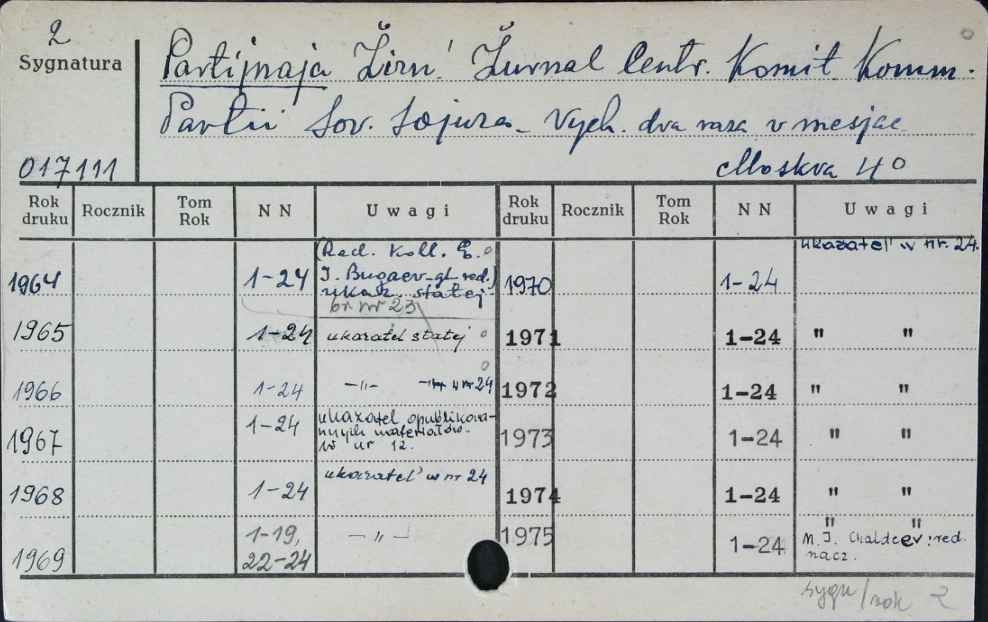 2
Sygnatura
Partijnaja Žizn'. Žurnal Centr. Komit. Komm.
Partii Sov. Sojuza. Vych. dva raza v mesjac
017111
Moskva 4°
Rok druku Rocznik Tom Rok N N Uwagi Rok druku Rocznik Tom Rok N N Uwagi
1964 1-24 (Red. Koll. E.
I. Bugaev-gł. red.)
ukaz. statej
w nr 23
1965 1-24 ukazatel statej
1966 1-24 -"- -"- w nr 24
1967 1-24 ukazatel opublikova-
nnych materiałov.
w nr 12.
1968 1-24 ukazatel' w nr 24
1969 1-19,
22-24 -"-
1970 1-24 ukazatel' w nr. 24.
1971 1-24 " "
1972 1-24 " "
1973 1-24 " "
1974 1-24 " "
1975 1-24 " "
M. I. Chaldeev: red.
nacz.
sygn/rok 2